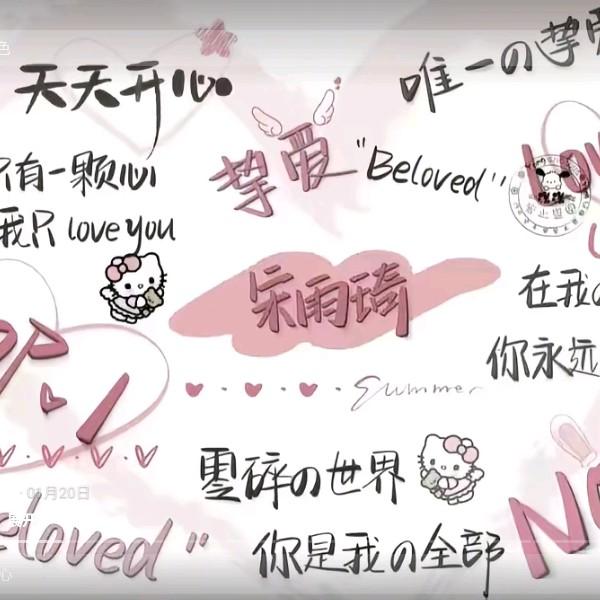 色
天天开心
唯一の挚爱
挚爱
"Beloved"
只有一颗心
我只 love you
宋雨琦
在我
你永远
Summer
零碎の世界
01月20日
展开
eloved"
你是我の全部
No
心